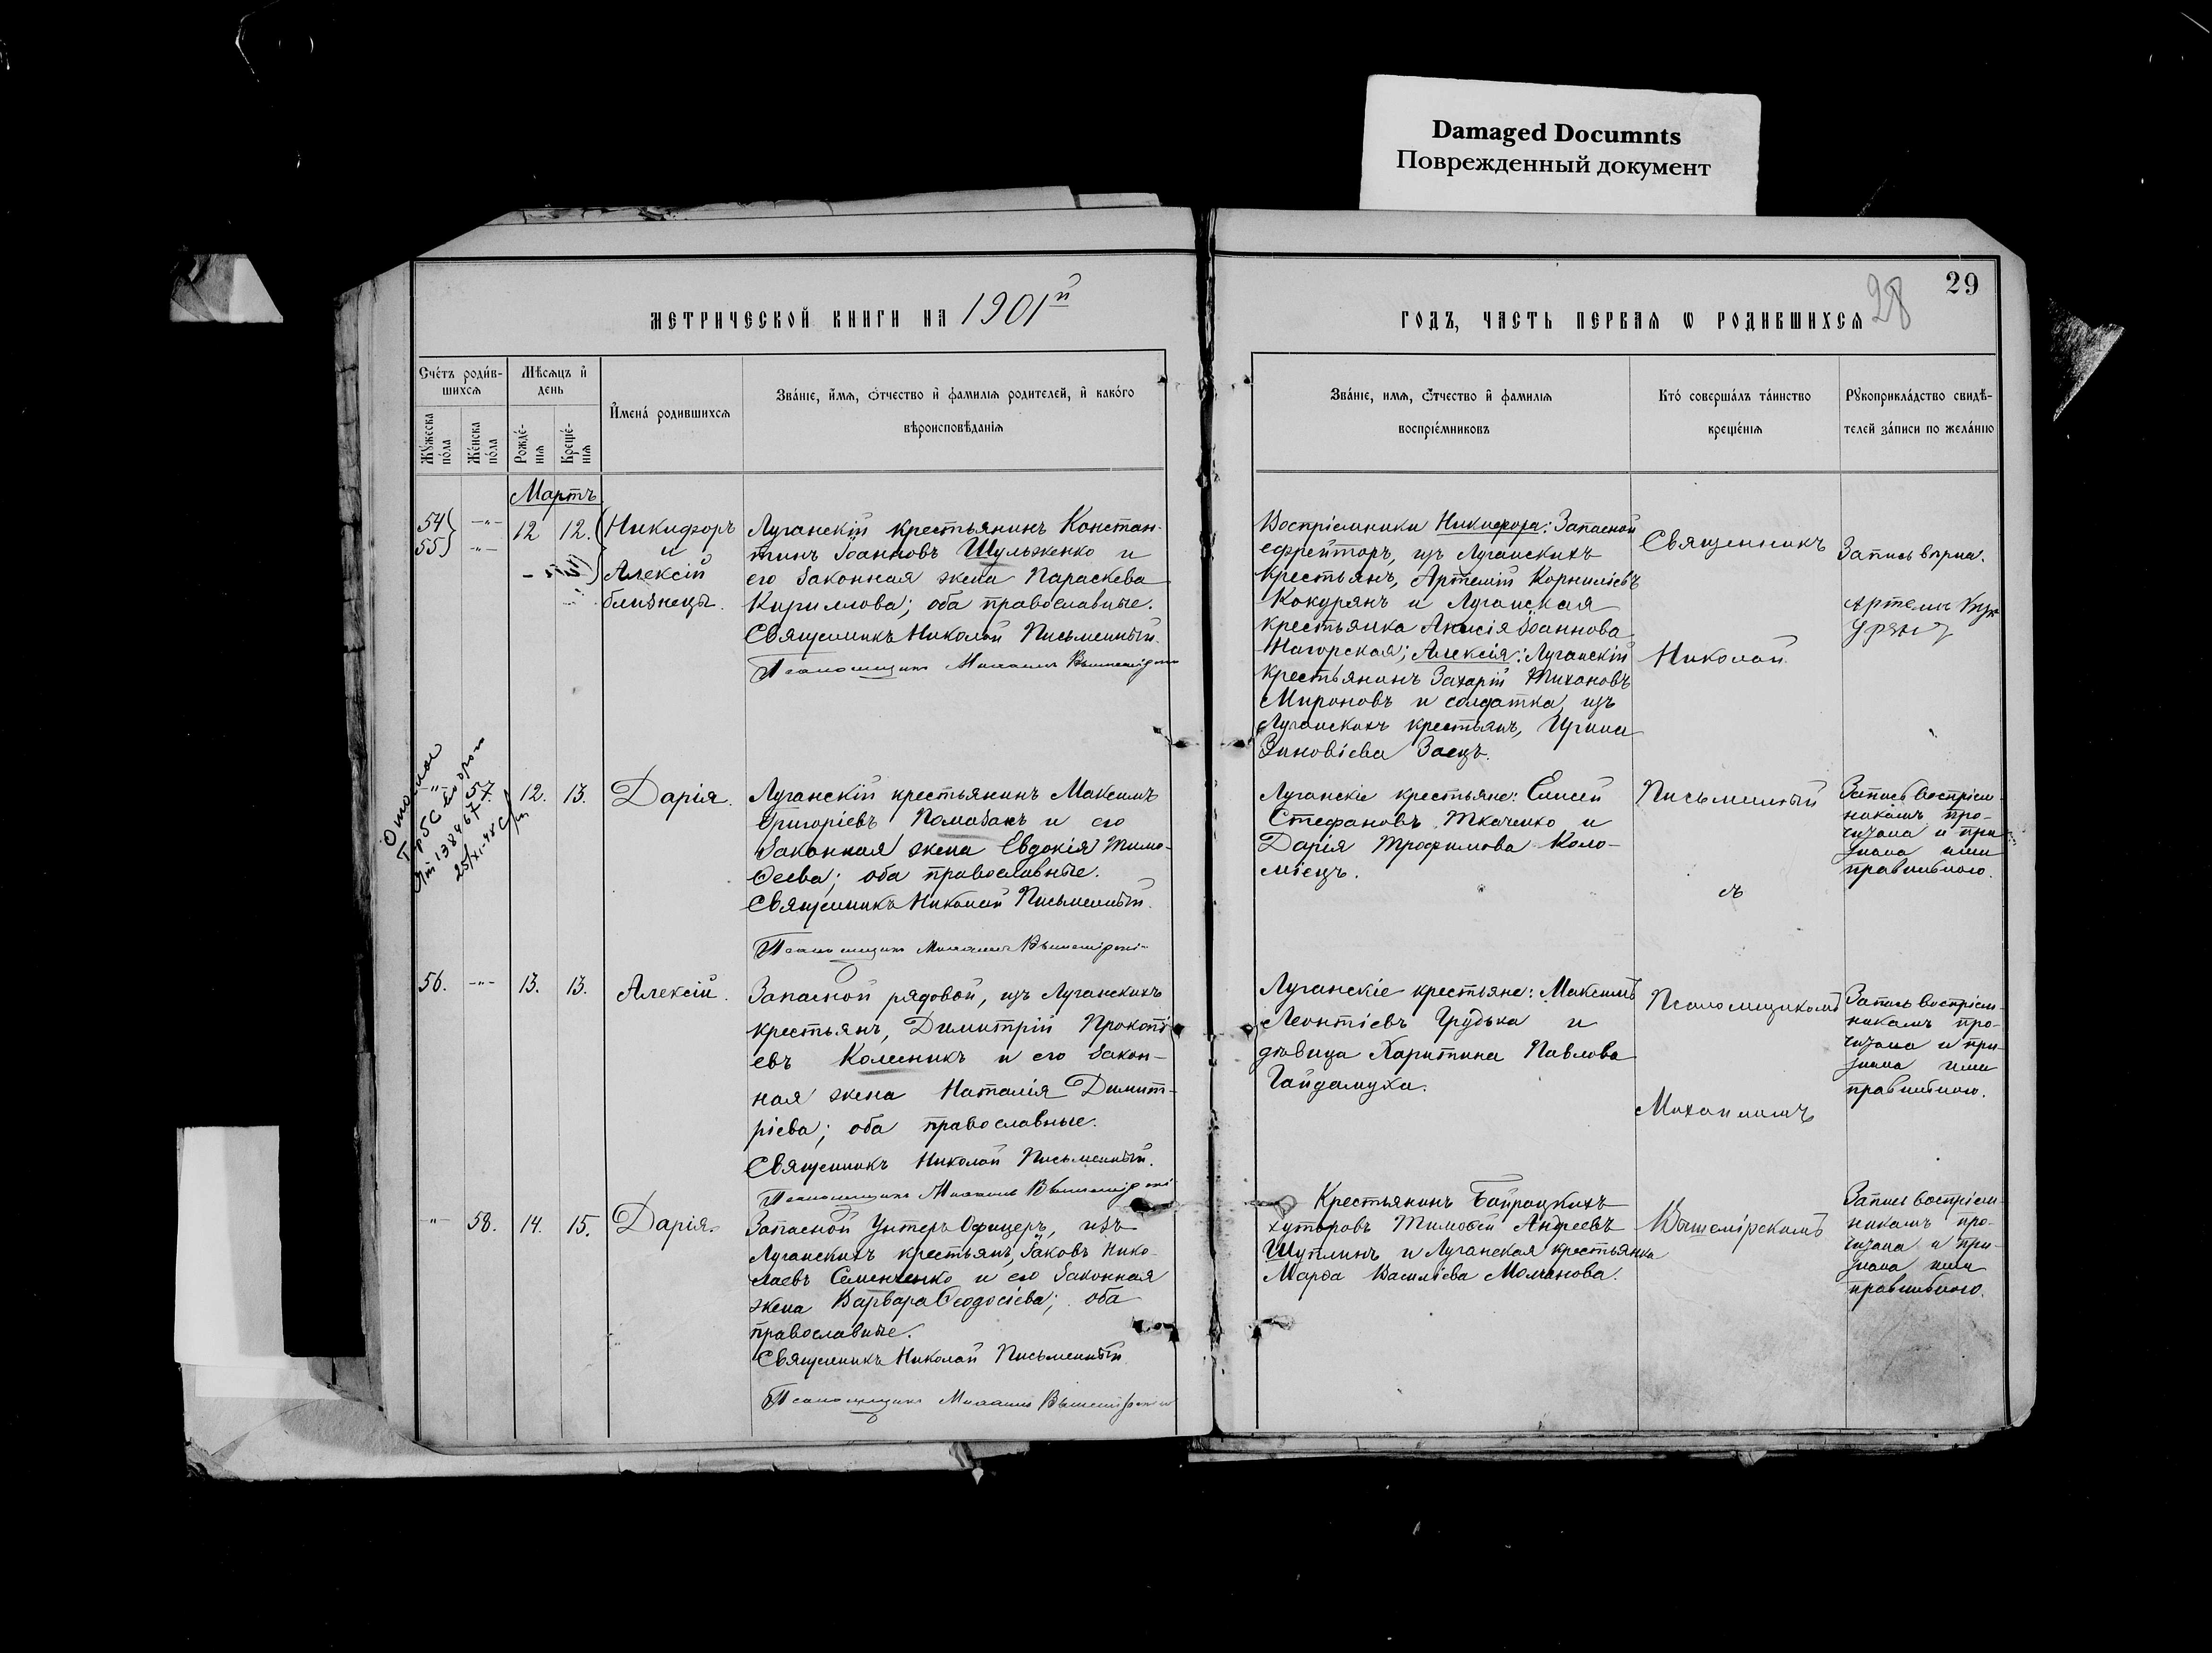 Damaged Documnts
Поврежденный документ
29
28
МЕТРИЧЕСКОЙ КНИГИ НА 1901й
ГОДЪ, ЧАСТЬ ПЕРВАЯ Ѡ РОДИВШИХСЯ
Счéтъ роди́в-
шихся
Му́жеска
по́ла
Же́нска
по́ла
Мѣсяцъ и
день
Рожде́-
нія
Креще́-
нія
Имена́ родившихся
Зва́ніе, и́мя, о́тчество и фамилія родителей, и како́го
вѣроисповѣданія
Зва́ніе, имя, о́тчество и фамилія
воспріе́мниковъ
Кто́ соверша́лъ та́инство
креще́нія
Рукоприкла́дство свидѣ-
телей за́писи по жела́нію
Мартъ
54
55
12 12.
Никифоръ
и
Алексій
близнецы.
Луганскій крестьянинъ Констан-
тинъ Іоанновъ Шульженко и
его законная жена Параскева
Кириллова; оба православные.
Священникъ Николай Письменный.
Псаломщикъ Михаилъ Вышемірскій
Воспріемники Никифора: Запасной
ефрейторъ, изъ Луганскихъ
крестьянъ, Артемій Корниліевъ
Кокурянъ и Луганская
крестьянка Анисія Іоаннова
Нагорская; Алексія: Луганскій
крестьянинъ Захарій Тихоновъ
Мироновъ и солдатка, изъ
Луганскихъ крестьянъ, Ирина
Зиновіева Заецъ.
Священникъ
Николай
Запись
Артемъ
12. 13. Дарія.
Луганскій крестьянинъ Максимъ
Григоріевъ Помазанъ и его
законная жена Евдокія Тимо-
ѳеева; оба православные.
Священникъ Николай Письменный.
Псаломщикъ Михаилъ Вышемірскій
Луганскіе крестьяне: Елисей
Стефановъ Ткаченко и
Дарія Трофимова Коло-
міецъ.
Письменный
съ
Запись воспріем-
никамъ про-
читана и при-
знана ими
правильною.
56. -"- 13. 13. Алексій.
Запасной рядовой, изъ Луганскихъ
крестьянъ, Димитрій Прокопі-
евъ Колесникъ и его закон-
ная жена Наталія Димит-
ріева; оба православные.
Священникъ Николай Письменный.
Псаломщикъ Михаилъ Вышемірскій
Луганскіе крестьяне: Максимъ
Леонтіевъ Грудька и
дѣвица Харитина Павлова
Гайдамуха.
Псаломщикомъ
Михаиломъ
Запись воспріем-
никамъ про-
читана и при-
знана ими
правильною.
-"- 58. 14. 15. Дарія.
Запасной Унтеръ Офицеръ, изъ
Луганскихъ крестьянъ, Іаковъ Нико-
лаевъ Семенченко и его законная
жена Варвара Ѳеодосіева; оба
православные.
Священникъ Николай Письменный.
Псаломщикъ Михаилъ Вышемірскій
Крестьянинъ Байрацкихъ
хуторовъ Тимоѳей Андреевъ
Шутлинъ и Луганская крестьянка
Марѳа Василіева Молчанова.
Вышемірскимъ
Запись воспріем-
никамъ про-
читана и при-
знана ими
правильною.